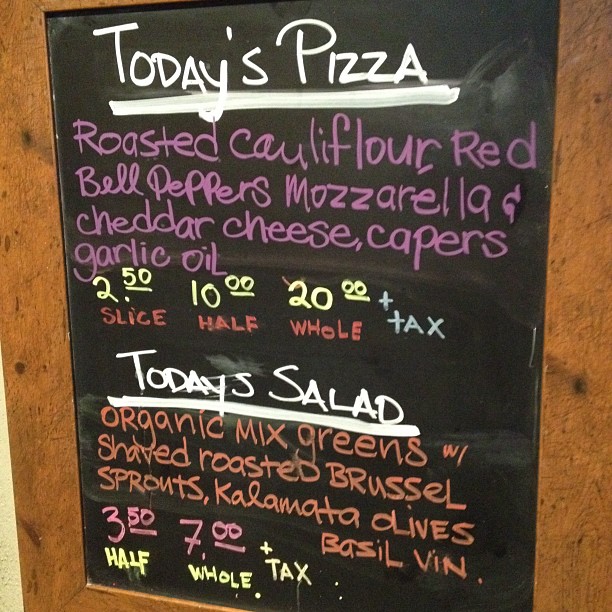 Today's Pizza
Roasted cauliflour, Red
Bell Peppers Mozzarella &
cheddar cheese, capers
garlic oil
2.50 10 00 20 00 + TAX
SLICE HALF WHOLE
Todays Salad
organic MIX greens w/
shaved roasted BRUSSEL
SPROUTS, Kalamata OLIVES
BASIL VIN.
3 50 7.00 + TAX
HALF WHOLE